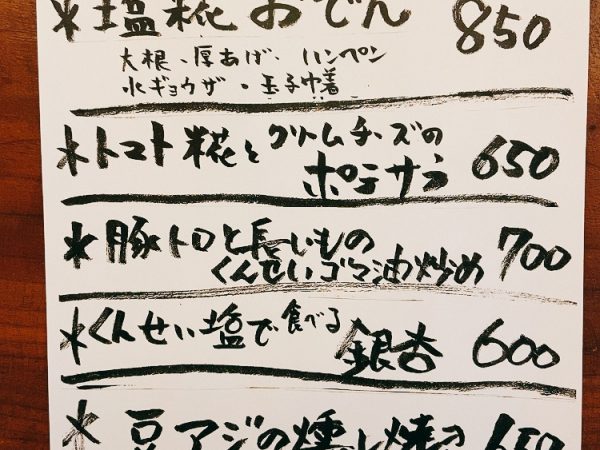 *塩糀おでん 850
大根、厚あげ、ハンペン
水ギョウザ・玉子巾着
*トマト糀とクリームチーズの
ポテサラ 650
*豚トロと長いもの
くんせいゴマ油炒め 700
*くんせい塩で食べる
銀杏 600
*豆アジの燻し焼き 650